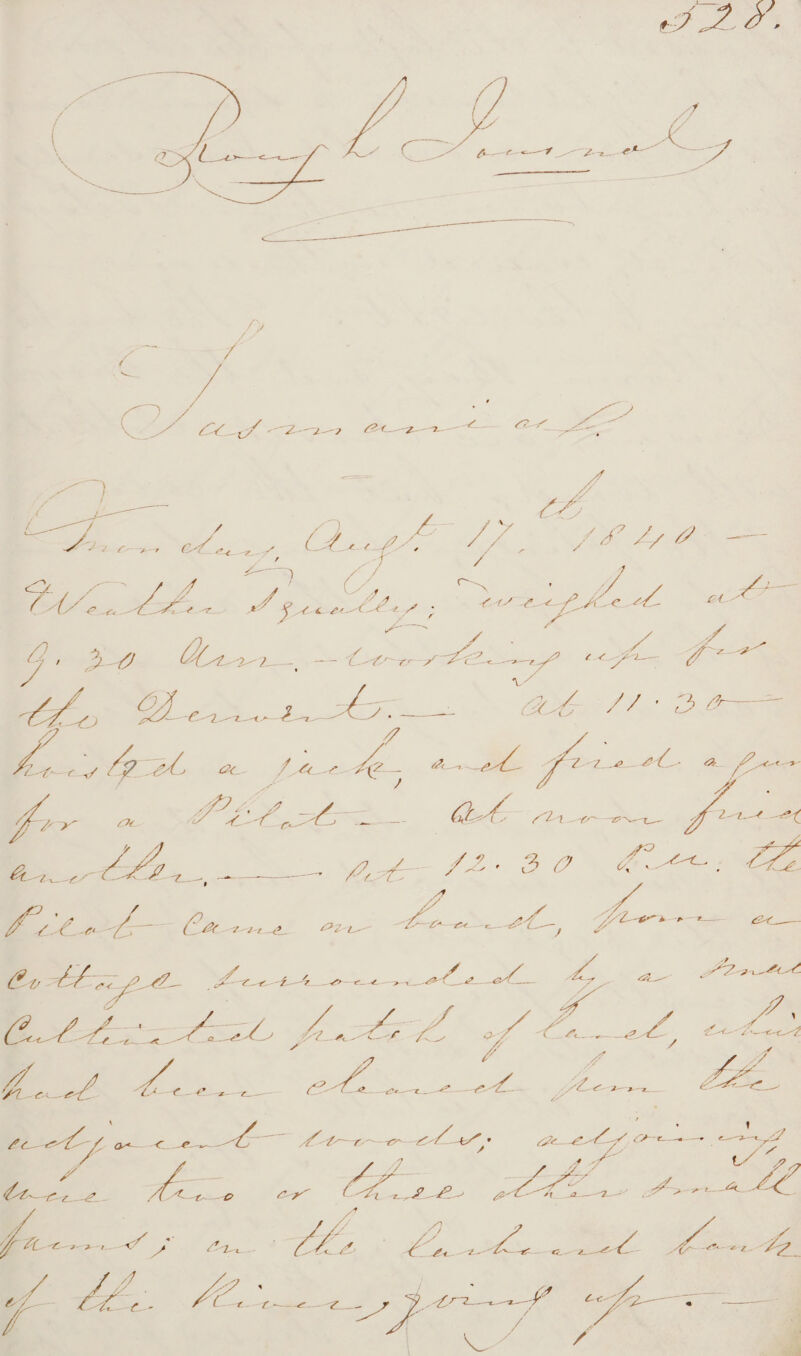 528.
Rough Journal
Tasmania
Monday, Augt. 17.th 1840 —
Weather Squally; weighed at
9.30 Am. — working up for
the Derwent. — At 11.30 —
hoisted a jack, and fired a gun
for a Pilot — At noon fired
another, — At 12.30 P.M. the
Pilot Came on board, from a
Cottage surrounded by a small
Cultivated patch of land, which
had been cleared from the
adjacent woods; adjoining
were two or three other small
farms; on the larboard bank
of the River, going up. —